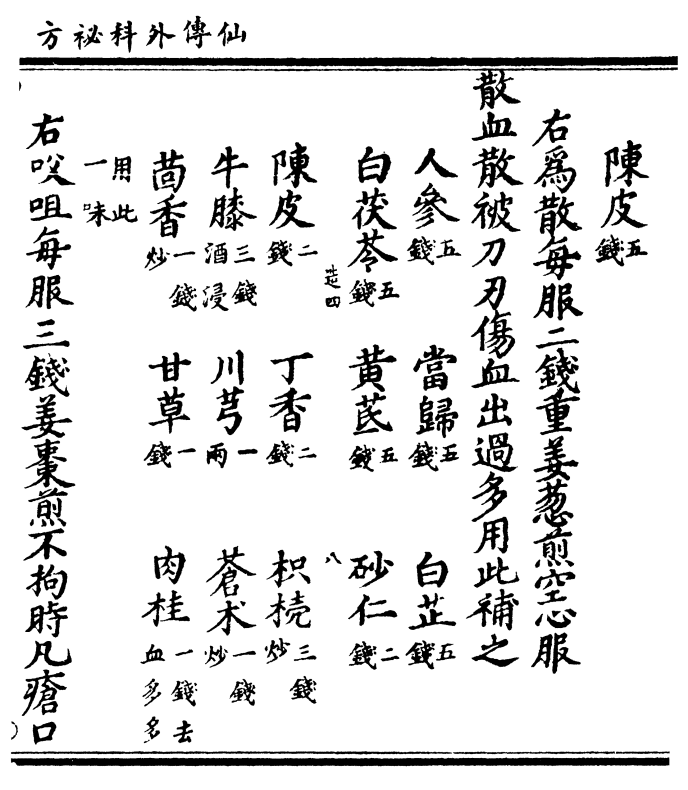 仙傳外科祕方
陳皮五錢
右爲散每服二錢重姜葱煎空心服
散血散被刀刃傷血出過多用此補之
人參五錢 當歸五錢 白芷五錢
白茯苓五錢 黃芪五錢 砂仁二錢
造四 八
陳皮二錢 丁香二錢 枳殼三錢炒
牛膝三錢酒浸 川芎一兩 蒼术一錢炒
茴香一錢炒 甘草一錢 肉桂一錢去血多多
用此一味
右㕮咀每服三錢姜棗煎不拘時凡瘡口